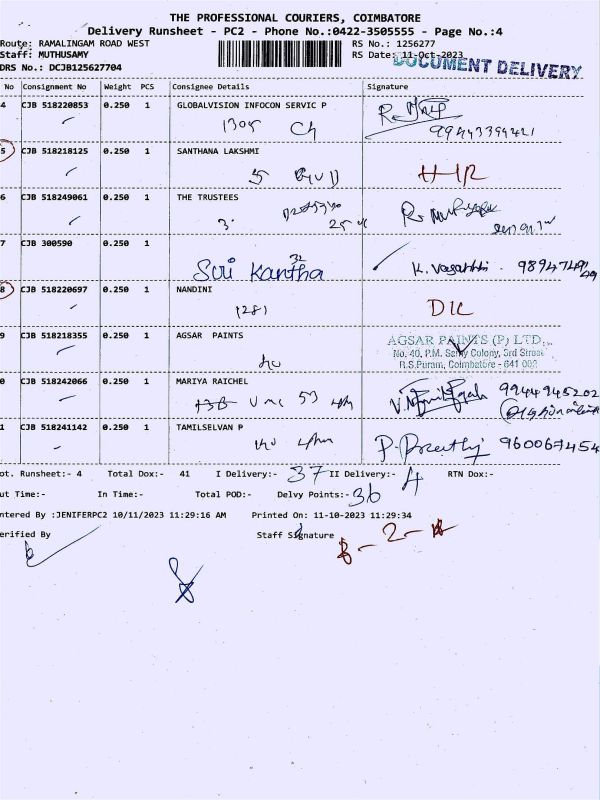 THE PROFESSIONAL COURIERS, COIMBATORE
Delivery Runsheet - PC2 - Phone No.:0422-3505555 - Page No.:4
Route: RAMALINGAM ROAD WEST RS No.: 1256277
Staff: MUTHUSAMY RS Date: 11-Oct-2023
DRS No.: DCJB125627704 DOCUMENT DELIVERY
No Consignment No Weight PCS Consignee Details Signature
4 CJB 518220853 0.250 1 GLOBALVISION INFOCON SERVIC P
1305 Ch
5 CJB 518218125 0.250 1 SANTHANA LAKSHMI
6 CJB 518249061 0.250 1 THE TRUSTEES
3.
7 CJB 300590 0.250 1
32
Sri Kantha K. Vasanthi
8 CJB 518220697 0.250 1 NANDINI
1281 DIL
9 CJB 518218355 0.250 1 AGSAR PAINTS
AGSAR PAINTS (P) LTD.,
No. 40, P.M. Samy Colony, 3rd Street
R.S.Puram, Coimbatore - 641 002
0 CJB 518242066 0.250 1 MARIYA RAICHEL
9944945202
1 CJB 518241142 0.250 1 TAMILSELVAN P
P. Preethi 960067454
ot. Runsheet:- 4 Total Dox:- 41 I Delivery:- 37 II Delivery:- 4 RTN Dox:-
ut Time:- In Time:- Total POD:- Delvy Points:- 36
ntered By :JENIFERPC2 10/11/2023 11:29:16 AM Printed On: 11-10-2023 11:29:34
erified By Staff Signature